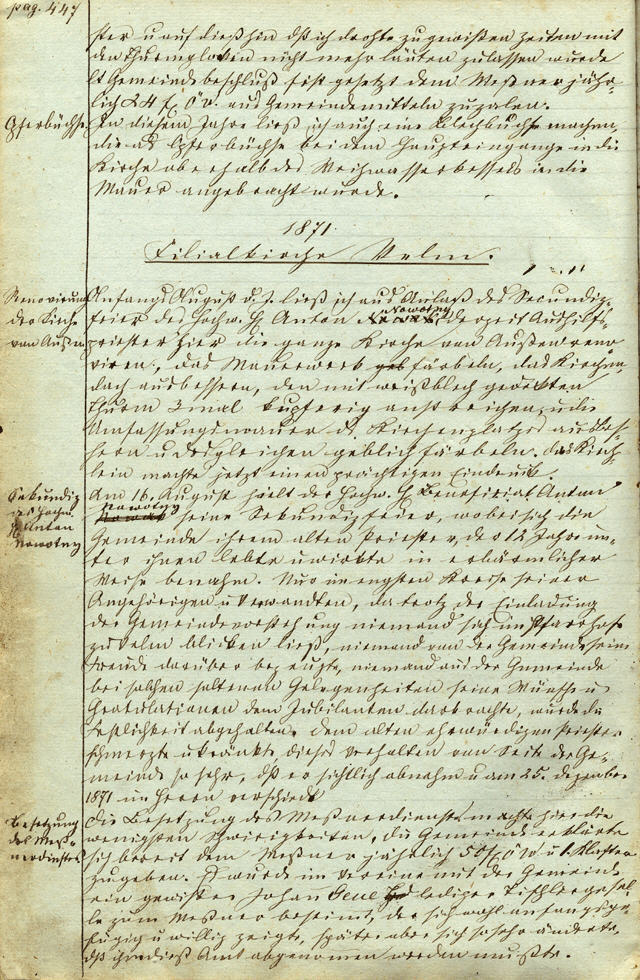 pag. 447
ster u auf dieß hin dß ich drohte zu gewißen Zeiten mit
den Thurmglocken nicht mehr läuten zulassen wurde
lt Gemeindebeschluß fest gesetzt dem Meßner jähr-
lich 24 f. ÖW. aus Gemeindemitteln zuzalen.
Opferbüchse. In diesem Jahre ließ ich auch eine Blechbuchse machen
die als Opferbüchse bei dem Haupteingange in die
Kirche oberhalb des Weihwasserbeckens in die
Mauer angebracht wurde.
1871.
Filialkirche Velm.
Renovirung der Kirche von Außen
Anfangs August d. J. ließ ich aus Anlaß der Secundiz-
feier des hochw. H Anton Nowotny derzeit Aushilfs-
priester hier die ganze Kirche von Außen reno
viren, das Mauerwerk färbeln, das Kirchen
dach ausbessern, den mit weißblech gedekten
Thurm 3mal kupferig anstreichen, u die
Umfassungsmauer d. Kirchenplatzes ausbes-
sern u desgleichen gelblich färbeln. Das Kirch
lein machte jetzt einen prächtigen Eindruck.
Sekundiz des hochw. H Anton Nowotny
Am 16. August hielt der hochw. H Beneficiat Anton
Nowotny seine Sekundizfeier, wobei sich die
Gemeinde ihrem alten Priester, der 12 Jahre un-
ter ihnen lebte u wirkte in erbärmlicher
Weise benahm. Nur im engsten Kreise seiner
Angehörigen u Verwandten, da trotz der Einladung
der Gemeindevorstehung niemand sich im Pfarrhofe
zu Velm blicken ließ, niemand von der Gemeinde seine
Freude darüber bezeugte, niemand aus der Gemeinde
bei solchen seltenen Gelegenheiten seine Wünsche u
Gratulationen dem Jubilanten darbrachte, wurde die
Festlichkeit abgehalten. Dem alten ehrwürdigen Priester
schmerzte u kränkte dieses Verhalten von Seite der Ge-
meinde so sehr, dß er sichtlich abnahm u am 25. Dezember
1871 im Herrn verschied.
Besetzung des Meß-nerdienstes
Die Besetzung des Meßnerdienstes machte hier die
wenigsten Schwirigkeiten, die Gemeinde erklärte
sich bereit dem Meßner jährlich 50 f ÖW u 1 Klafter
zugeben. Es wurde im Vereine mit der Gemeinde
ein gewißer Johan lediger Tischlergesel-
le zum Meßner bestimt, der sich wohl anfangs ge-
fügig u willig zeigte, später aber sich so sehr änderte,
dß ihm dieß Amt abgenomen werden mußte.